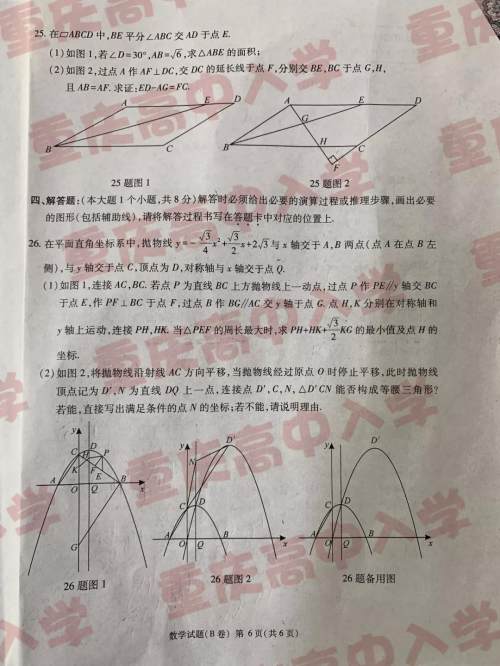 25. 在▱ABCD中,BE平分∠ABC交AD于点E.
(1)如图1,若∠D=30°,AB=√6,求△ABE的面积;
(2)如图2,过点A作AF⊥DC,交DC的延长线于点F,分别交BE,BC于点G,H,
且AB=AF. 求证:ED-AG=FC.
A E D
B C
25题图1
A E D
G
B H C
F
25题图2
四、解答题:(本大题1个小题,共8分)解答时必须给出必要的演算过程或推理步骤,画出必要
的图形(包括辅助线),请将解答过程书写在答题卡中对应的位置上.
26. 在平面直角坐标系中,抛物线y=-√3/4x²+√3/2x+2√3与x轴交于A,B两点(点A在点B左
侧),与y轴交于点C,顶点为D,对称轴与x轴交于点Q.
(1)如图1,连接AC,BC. 若点P为直线BC上方抛物线上一动点,过点P作PE∥y轴交BC
于点E,作PF⊥BC于点F,过点B作BG∥AC交y轴于点G. 点H,K分别在对称轴和
y轴上运动,连接PH,HK. 当△PEF的周长最大时,求PH+HK+√3/2KG的最小值及点H的
坐标.
(2)如图2,将抛物线沿射线AC方向平移,当抛物线经过原点O时停止平移,此时抛物线
顶点记为D′,N为直线DQ上一点,连接点D′,C,N,△D′CN能否构成等腰三角形?
若能,直接写出满足条件的点N的坐标;若不能,请说明理由.
y
C H D P
K F
E
A O Q B x
G
26题图1
y D′
N
C D
A O Q B x
26题图2
y D′
C D
A O Q B x
26题备用图
数学试题(B卷) 第6页(共6页)
重庆高中入学
重庆高中入学
重庆高中入学